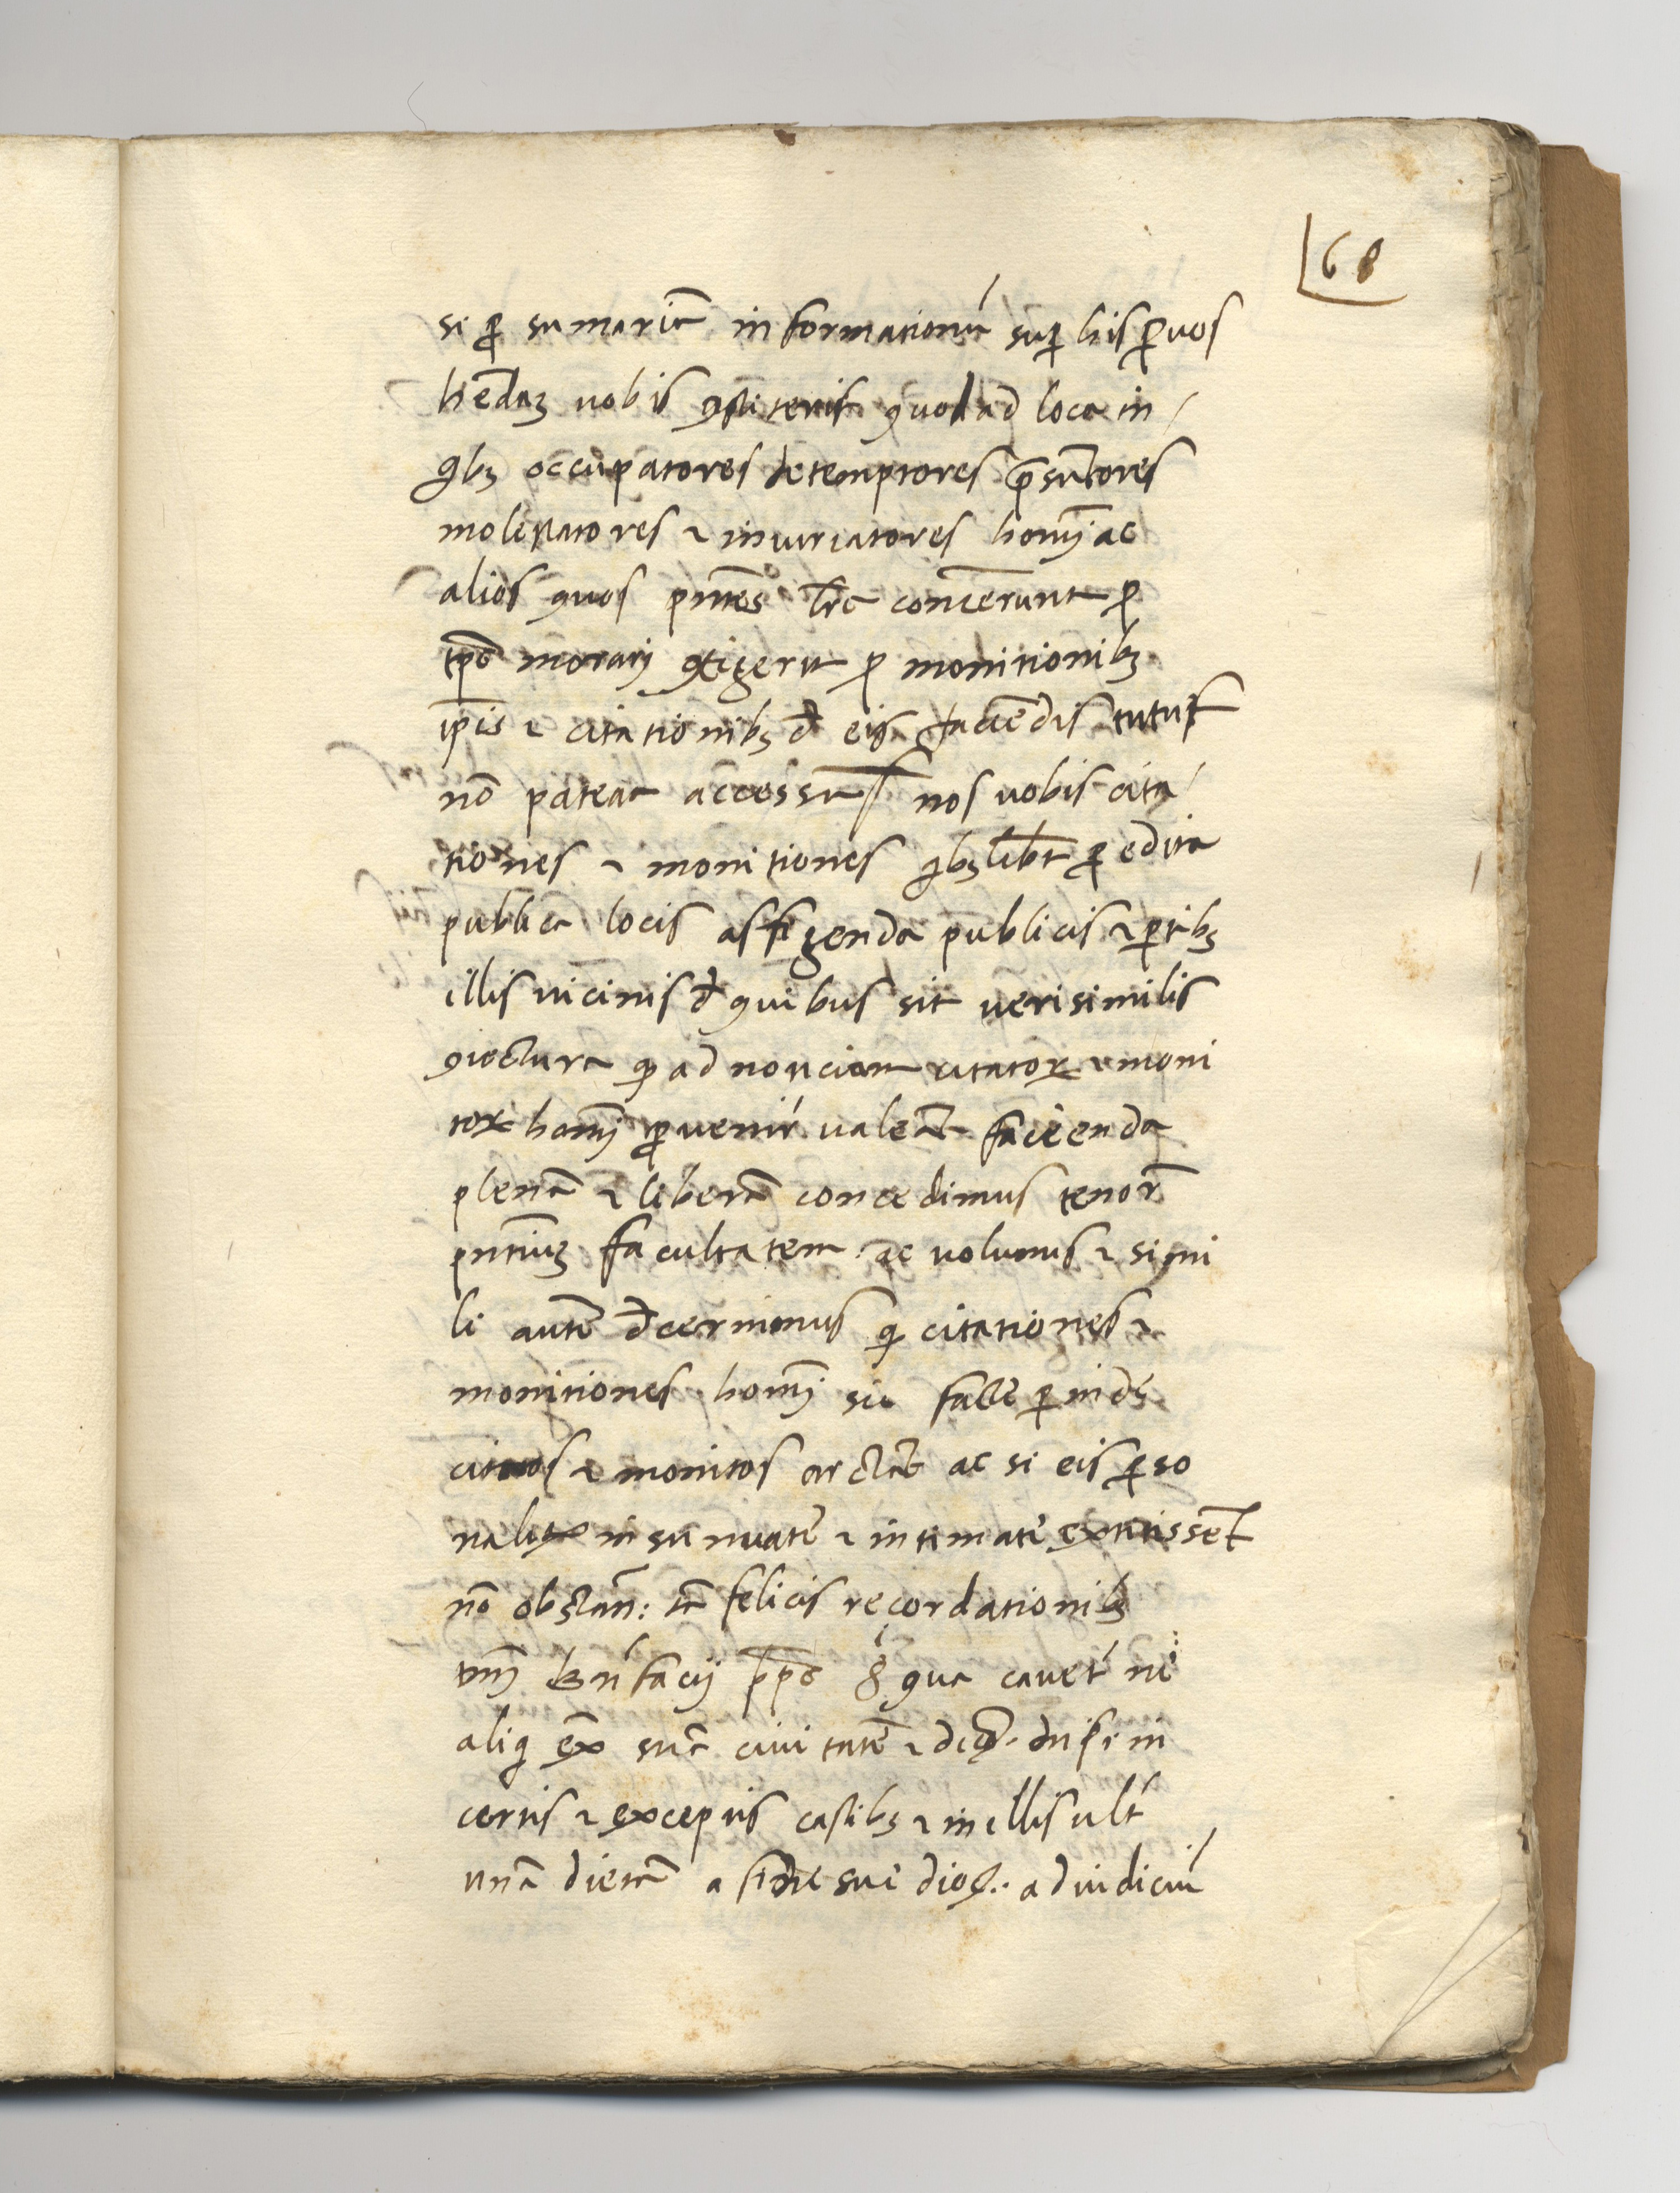 68
si ꝑ sumariã informationũ suꝑ his ꝑ uos
hẽdaꝫ uobis ꝯstiterit quod ad loca in
qbꝫ occupatores detemptores p̃sũtores
molestatores ⁊ iniuriatores hom̃õi ac
alios quos pñtes lr̃e concernunt ꝓ
tp̃e morari ꝯtigerit ꝓ monitionibꝫ
ip̃is ⁊ citationibꝫ đ eis faciẽdis tutus
nõ pateat accessus nos uobis cita
tiones ⁊ monitiones qbꝫlibt ꝑ edita
publica locis affigenda publicis ⁊ ꝑtibꝫ
illis uicinis đ quibus sit uerisimilis
ꝯiectura ꝙ ad noticiam citatoꝝ ⁊ moni
toꝝ hom̃õi ꝑuenir̃ ualeãt facienda
plenã ⁊ liberã concedimus tenor̃
pñtiuꝫ facultatem ac uolumus ⁊ simi
li autẽ đcernimus ꝙ citationes ⁊
monitiones hom̃õi sic facte ꝑinde
citatos ⁊ monitos arctẽt ac si eis ꝑso
naliter insinuate ⁊ intimate extitissẽt
nõ obstañ: tã felicis recordationibꝫ
Bonifacij pp̃e 8 qua cauet̃ ne
aliq̃ ex̃ suã ciuitatẽ ⁊ dioc̃. nisi in
certis ⁊ exceptis casibꝫ ⁊ in illis ult̃
unã dietã a fine sue dioc̃. ad iudiciũ